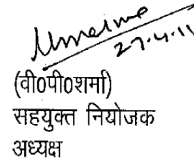 27.4.11
(वी0पी0शर्मा)
सहयुक्त नियोजक
अध्यक्ष